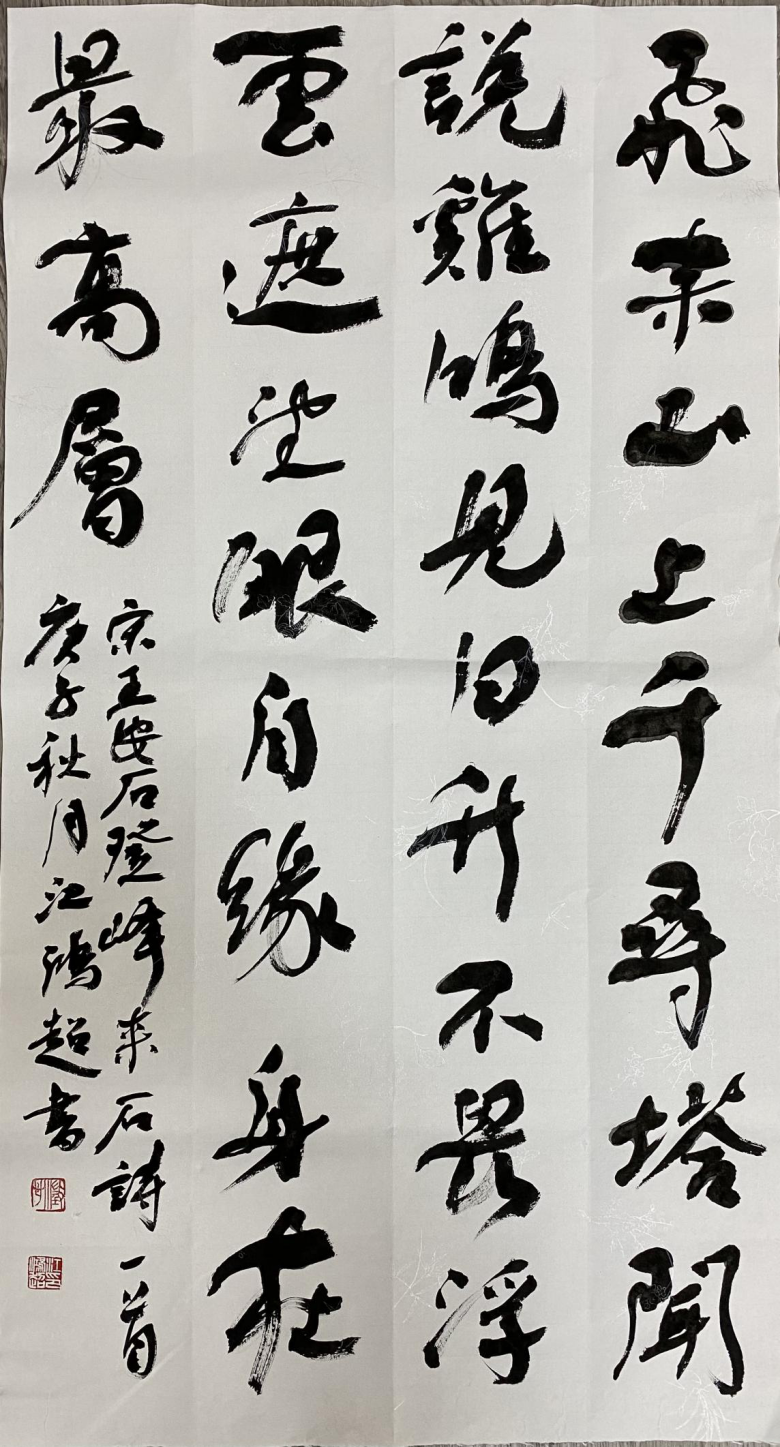 飛来山上千尋塔聞
說雞鳴見日升不畏浮
雲遮望眼自緣身在
最高層
宋王安石登峰来石詩一首
庚子秋月江鴻超書